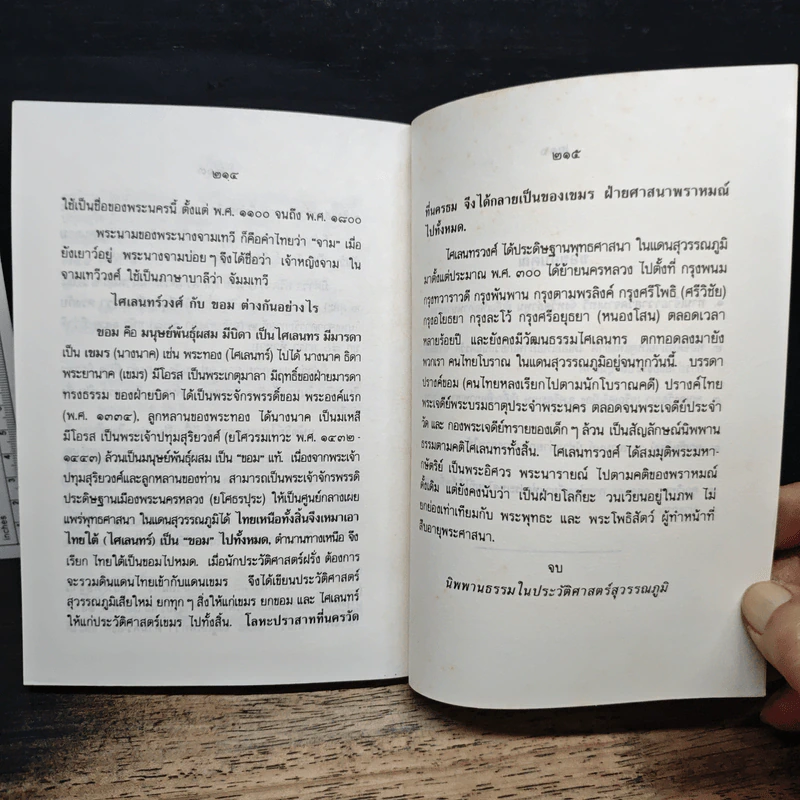 ๒๑๔
ใช้เป็นชื่อของพระนครนี้ ตั้งแต่ พ.ศ. ๑๑๐๐ จนถึง พ.ศ. ๑๘๐๐
พระนามของพระนางจามเทวี ก็คือคำไทยว่า "จาม" เมื่อ
ยังเยาว์อยู่ พระนางจามบ่อยๆ จึงได้ชื่อว่า เจ้าหญิงจาม ใน
จามเทวีวงศ์ ใช้เป็นภาษาบาลีว่า จัมมเทวี
ไศเลนทร์วงศ์ กับ ขอม ต่างกันอย่างไร
ขอม คือ มนุษย์พันธุ์ผสม มีบิดา เป็นไศเลนทร มีมารดา
เป็น เขมร (นางนาค) เช่น พระทอง (ไศเลนทร์) ไปได้ นางนาค ธิดา
พระยานาค (เขมร) มีโอรส เป็นพระเกตุมาลา มีฤทธิ์ของฝ่ายมารดา
ทรงธรรม ของฝ่ายบิดา ได้เป็นพระจักรพรรดิ์ขอม พระองค์แรก
(พ.ศ. ๑๓๓๔), ลูกหลานของพระทอง ได้นางนาค เป็นมเหสี
มีโอรส เป็นพระเจ้าปทุมสุริยวงศ์ (ยโศวรมเทวะ พ.ศ. ๑๔๓๒ -
๑๔๔๓) ล้วนเป็นมนุษย์พันธุ์ผสม เป็น "ขอม" แท้. เนื่องจากพระเจ้า
ปทุมสุริยวงศ์และลูกหลานของท่าน สามารถเป็นพระเจ้าจักรพรรดิ
ประดิษฐานเมืองพระนครหลวง (ยโศธรปุระ) ให้เป็นศูนย์กลางเผย
แพร่พุทธศาสนา ในแดนสุวรรณภูมิได้ ไทยเหนือทั้งสิ้นจึงเหมาเอา
ไทยใต้ (ไศเลนทร์) เป็น "ขอม" ไปทั้งหมด, ตำนานทางเหนือ จึง
เรียก ไทยใต้เป็นขอมไปหมด. เมื่อนักประวัติศาสตร์ฝรั่ง ต้องการ
จะรวมดินแดนไทยเข้ากับแดนเขมร จึงได้เขียนประวัติศาสตร์
สุวรรณภูมิเสียใหม่ ยกทุกๆ สิ่งให้แก่เขมร ยกขอม และ ไศเลนทร์
ให้แก่ประวัติศาสตร์เขมร ไปทั้งสิ้น. โลหะปราสาทที่นครวัด
๒๑๕
ที่นครธม จึงได้กลายเป็นของเขมร ฝ่ายศาสนาพราหมณ์
ไปทั้งหมด.
ไศเลนทรวงศ์ ได้ประดิษฐานพุทธศาสนา ในแดนสุวรรณภูมิ
มาตั้งแต่ประมาณ พ.ศ. ๓๐๐ ได้ย้ายนครหลวง ไปตั้งที่ กรุงพนม
กรุงทวาราวดี กรุงพันพาน กรุงตามพรลิงค์ กรุงศรีโพธิ (ศรีวิชัย)
กรุงอโยธยา กรุงละโว้ กรุงศรีอยุธยา (หนองโสน) ตลอดเวลา
หลายร้อยปี และยังคงมีวัฒนธรรมไศเลนทร ตกทอดลงมายัง
พวกเรา คนไทโบราณ ในแดนสุวรรณภูมิอยู่จนทุกวันนี้. บรรดา
ปรางค์ขอม (คนไทยหลงเรียกไปตามนักโบราณคดี) ปรางค์ไทย
พระเจดีย์พระบรมธาตุประจำพระนคร ตลอดจนพระเจดีย์ประจำ
วัด และ กองพระเจดีย์ทรายของเด็กๆ ล้วน เป็นสัญลักษณ์นิพพาน
ธรรมตามคติไศเลนทร์ทั้งสิ้น. ไศเลนทรวงศ์ ได้สมมุติพระมหา-
กษัตริย์ เป็นพระอิศวร พระนารายณ์ ไปตามคติของพราหมณ์
ดั้งเดิม แต่ยังคงนับว่า เป็นฝ่ายโลกียะ วนเวียนอยู่ในภพ ไม่
ยกย่องเท่าเทียมกับ พระพุทธะ และ พระโพธิสัตว์ ผู้ทำหน้าที่
สืบอายุพระศาสนา.
จบ
นิพพานธรรมในประวัติศาสตร์สุวรรณภูมิ
inches